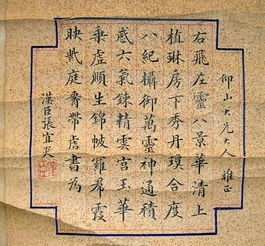 仰山大兄大人 雅正
右飛左靈八景華清上
植琳房下秀丹瓊合度
八紀攝御萬靈神通積
感六氣鍊精雲宮玉華
乘虛順生錦帔羅帬霞
映紫庭腰帶虎書為
湛臣張宜